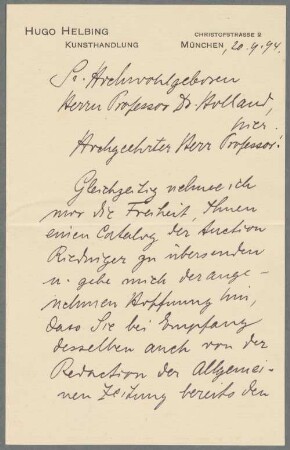 HUGO HELBING
KUNSTHANDLUNG
CHRISTOFSTRASSE 2
MÜNCHEN, 20.4.94.
Sr. Hochwohlgeboren
Herrn Professor Dr. Holland,
hier.
Hochgeehrter Herr Professor!
Gleichzeitig nehme ich
mir die Freiheit, Ihnen
einen Catalog der Auction
Riedinger zu übersenden
u. gebe mich der ange-
nehmen Hoffnung hin,
dass Sie bei Empfang
desselben auch von der
Redaction der Allgemei-
nen Zeitung bereits den